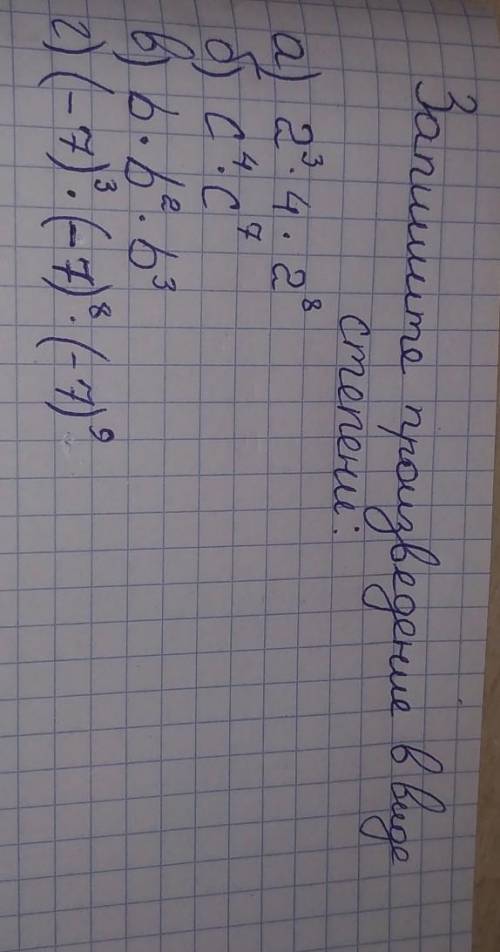 Запишите произведение в виде
степени:
а) 2³ · 4 · 2⁸
б) c⁴ · c⁷
в) b · b² · b³
г) (-7)³ · (-7)⁸ · (-7)⁹